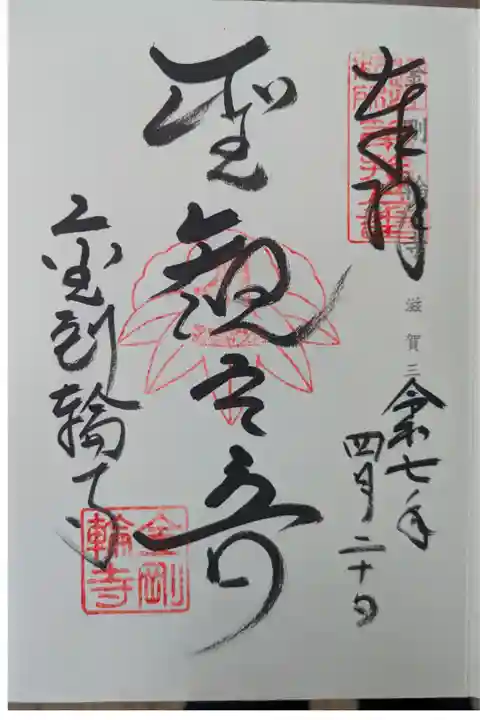 奉拝
金剛輪寺
滋賀三
令和七年
四月二十日
聖観世音
金剛輪寺
金剛
輪寺